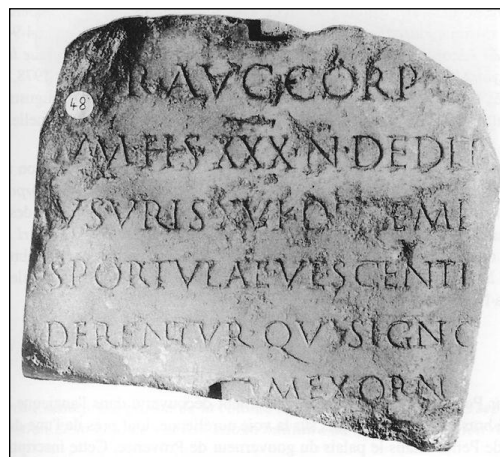 R·AVG·CORP
48
VM·HS·XXX·N·DEDI
VSVRIS EMI
SPORTVLAE·VESCENTI
DERENTVR· SIGNO
M EX ORN